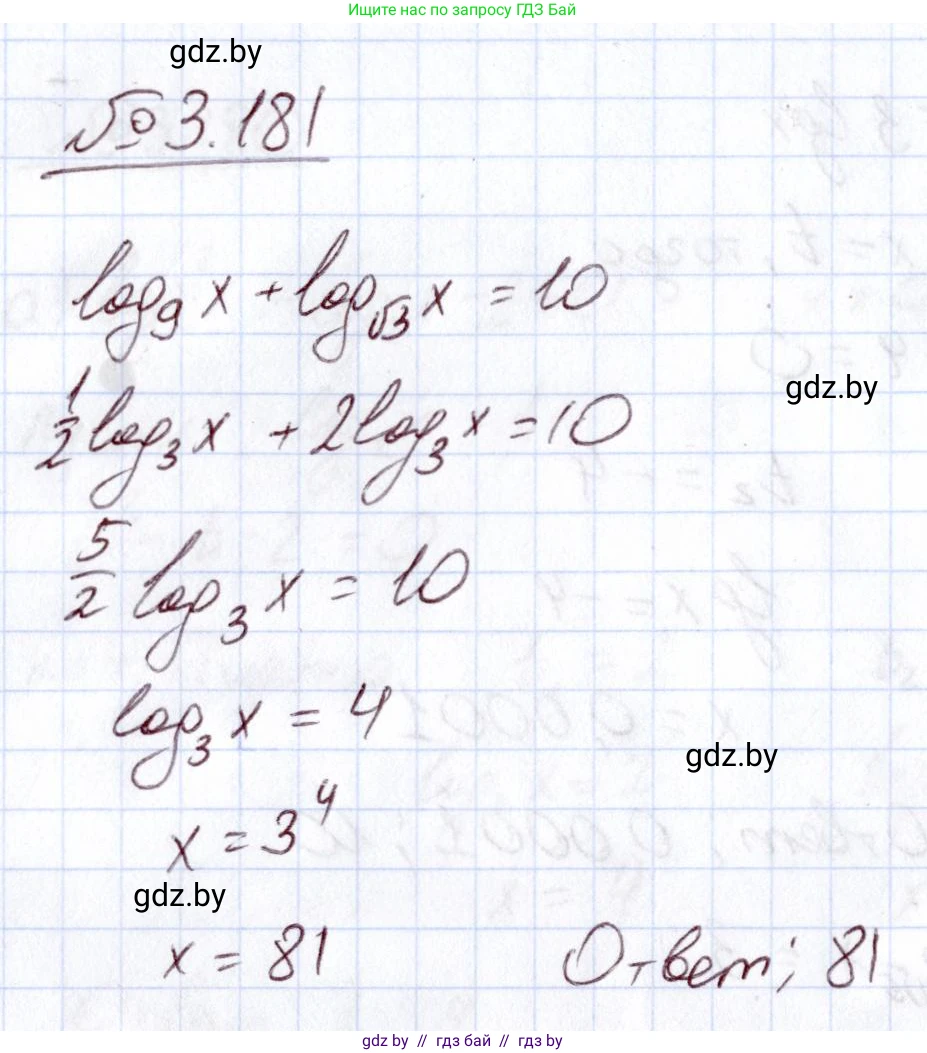 Ищите нас по запросу ГДЗ Бай
gdz.by
№ 3.181
log₉ x + log_√3 x = 10
gdz.by
1/2 log₃ x + 2 log₃ x = 10
5/2 log₃ x = 10
log₃ x = 4
gdz.by
x = 3⁴
gdz.by
x = 81 Ответ; 81
gdz by // гдз бай // гдз by